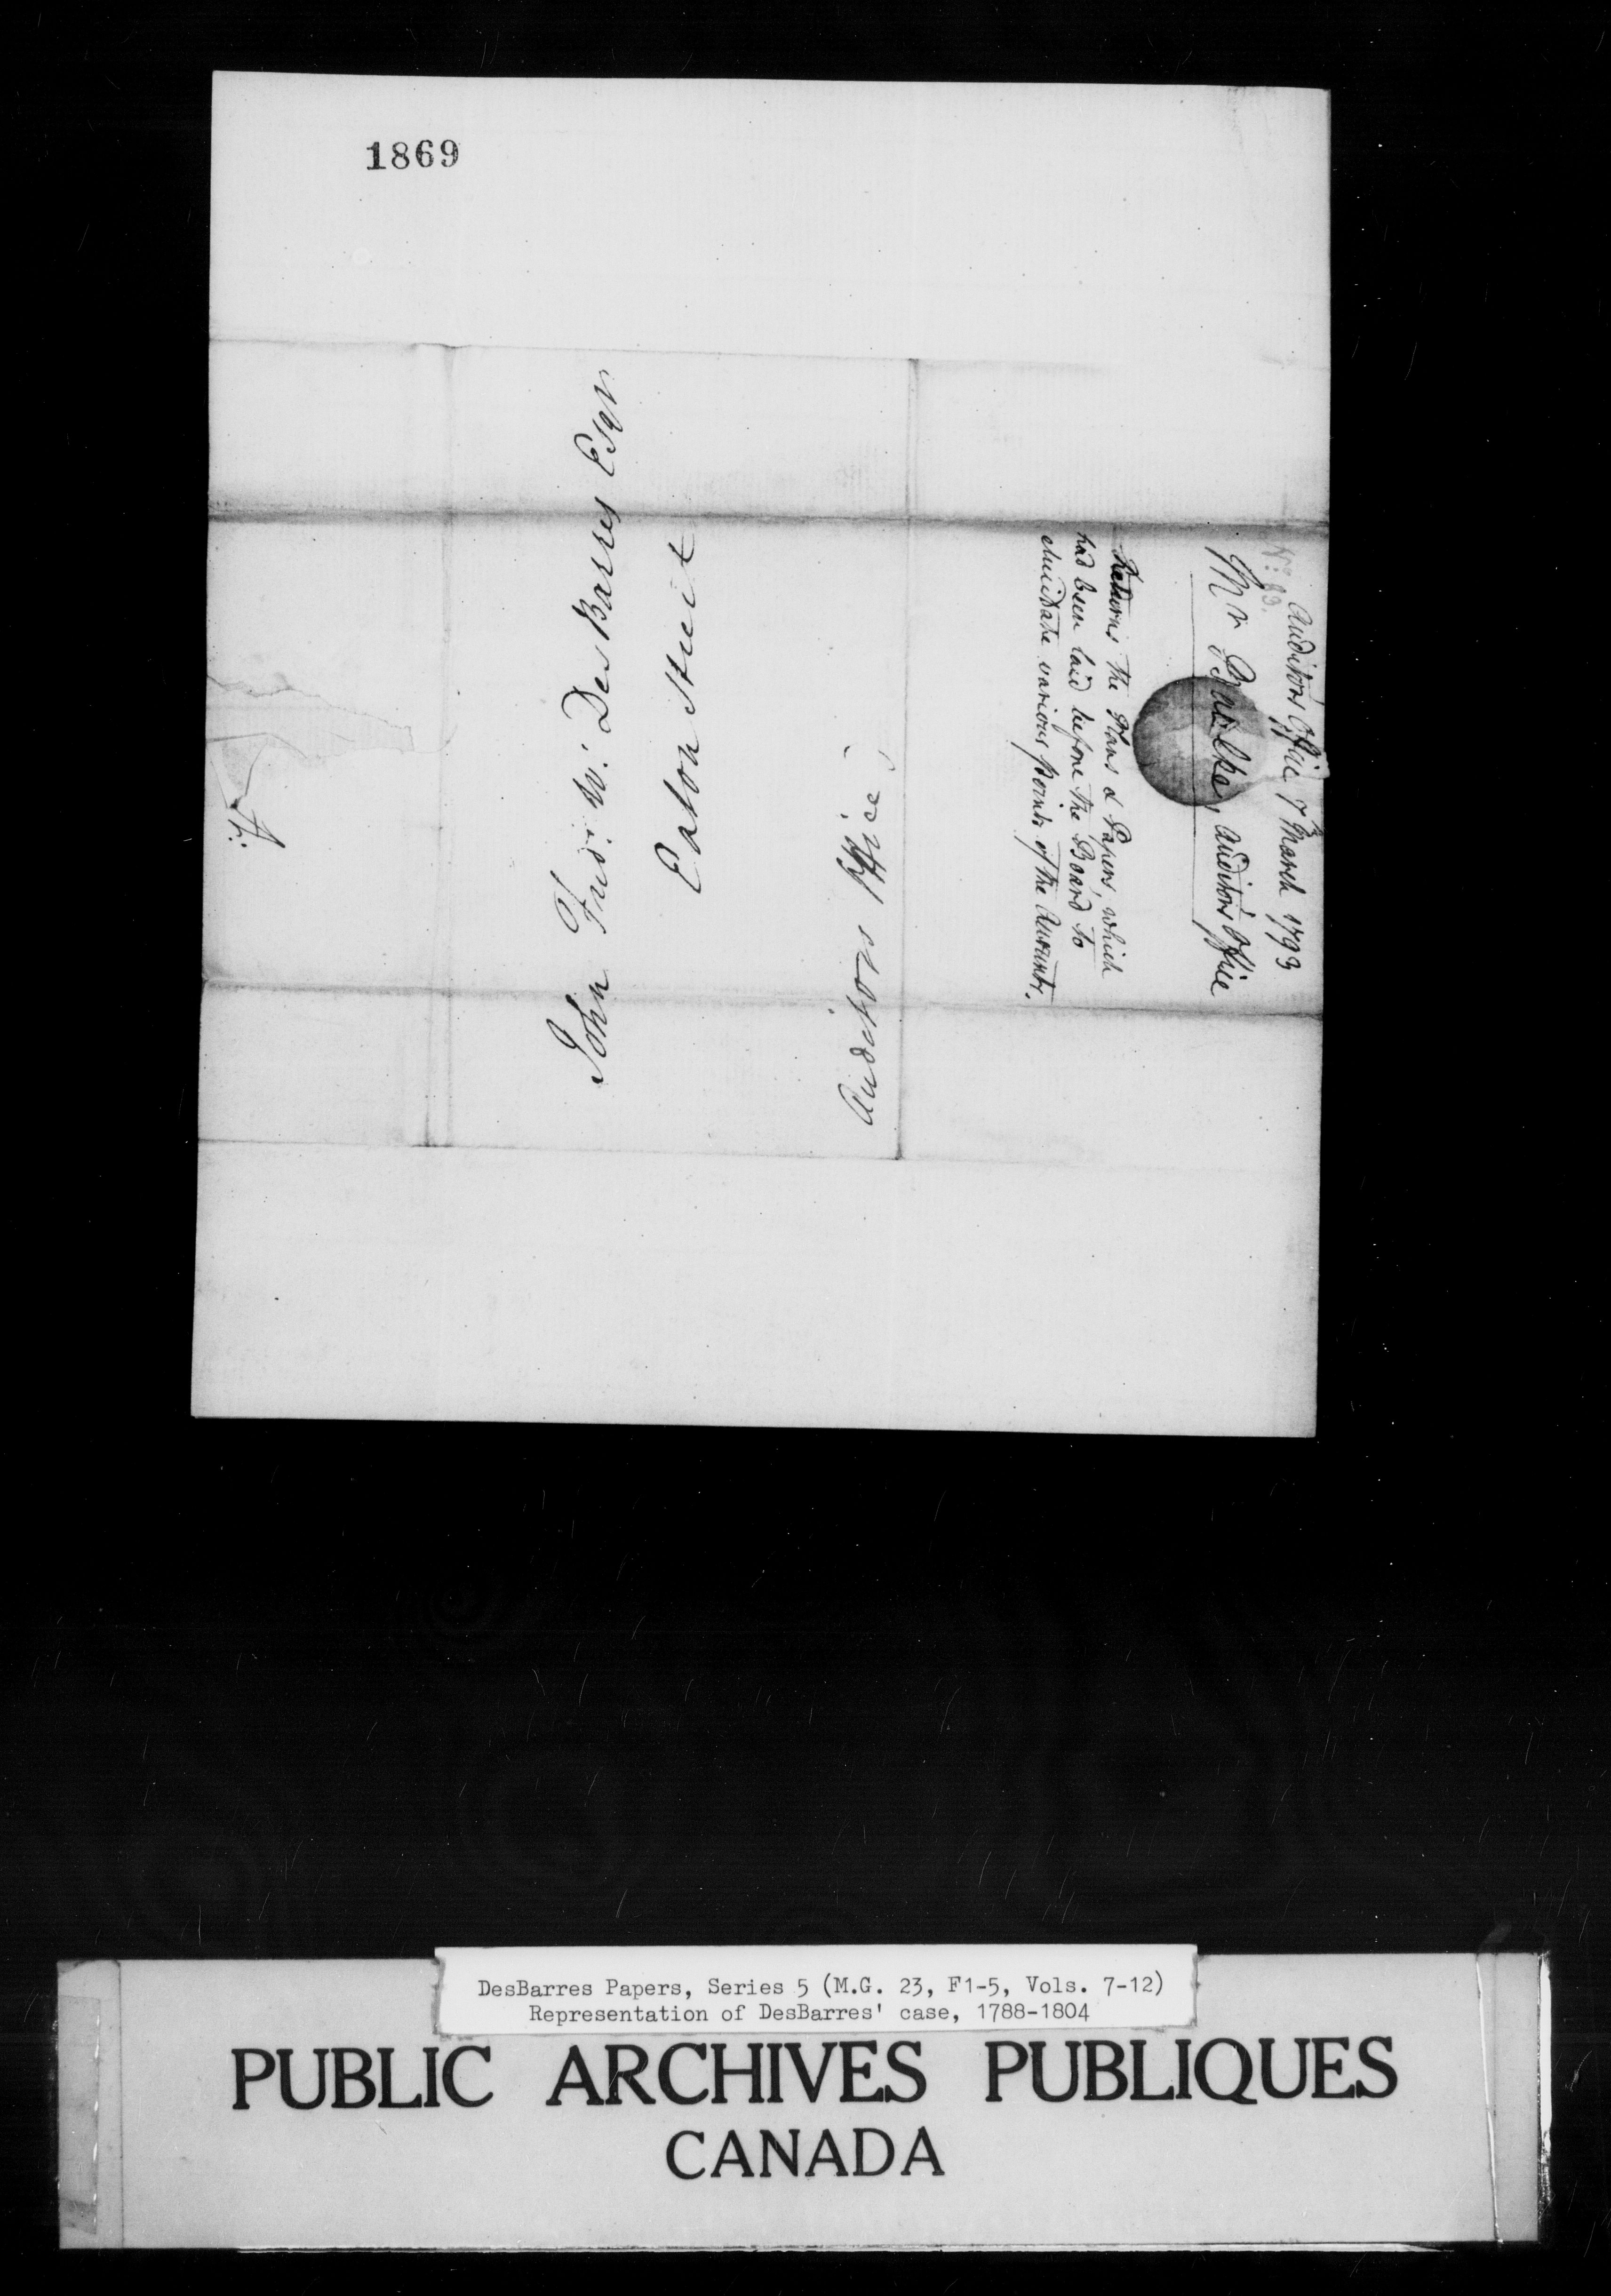 1869
John Fred: W: Des Barres Esqr
Eaton Street
Auditors Office
Auditors Office 7th March 1793
Mr Auditors Office
Returns the Plans & Papers, which
had been laid before the Board to
elucidate various points of the Accounts.
DesBarres Papers, Series 5 (M.G. 23, F1-5, Vols. 7-12)
Representation of DesBarres' case, 1788-1804
PUBLIC ARCHIVES PUBLIQUES
CANADA